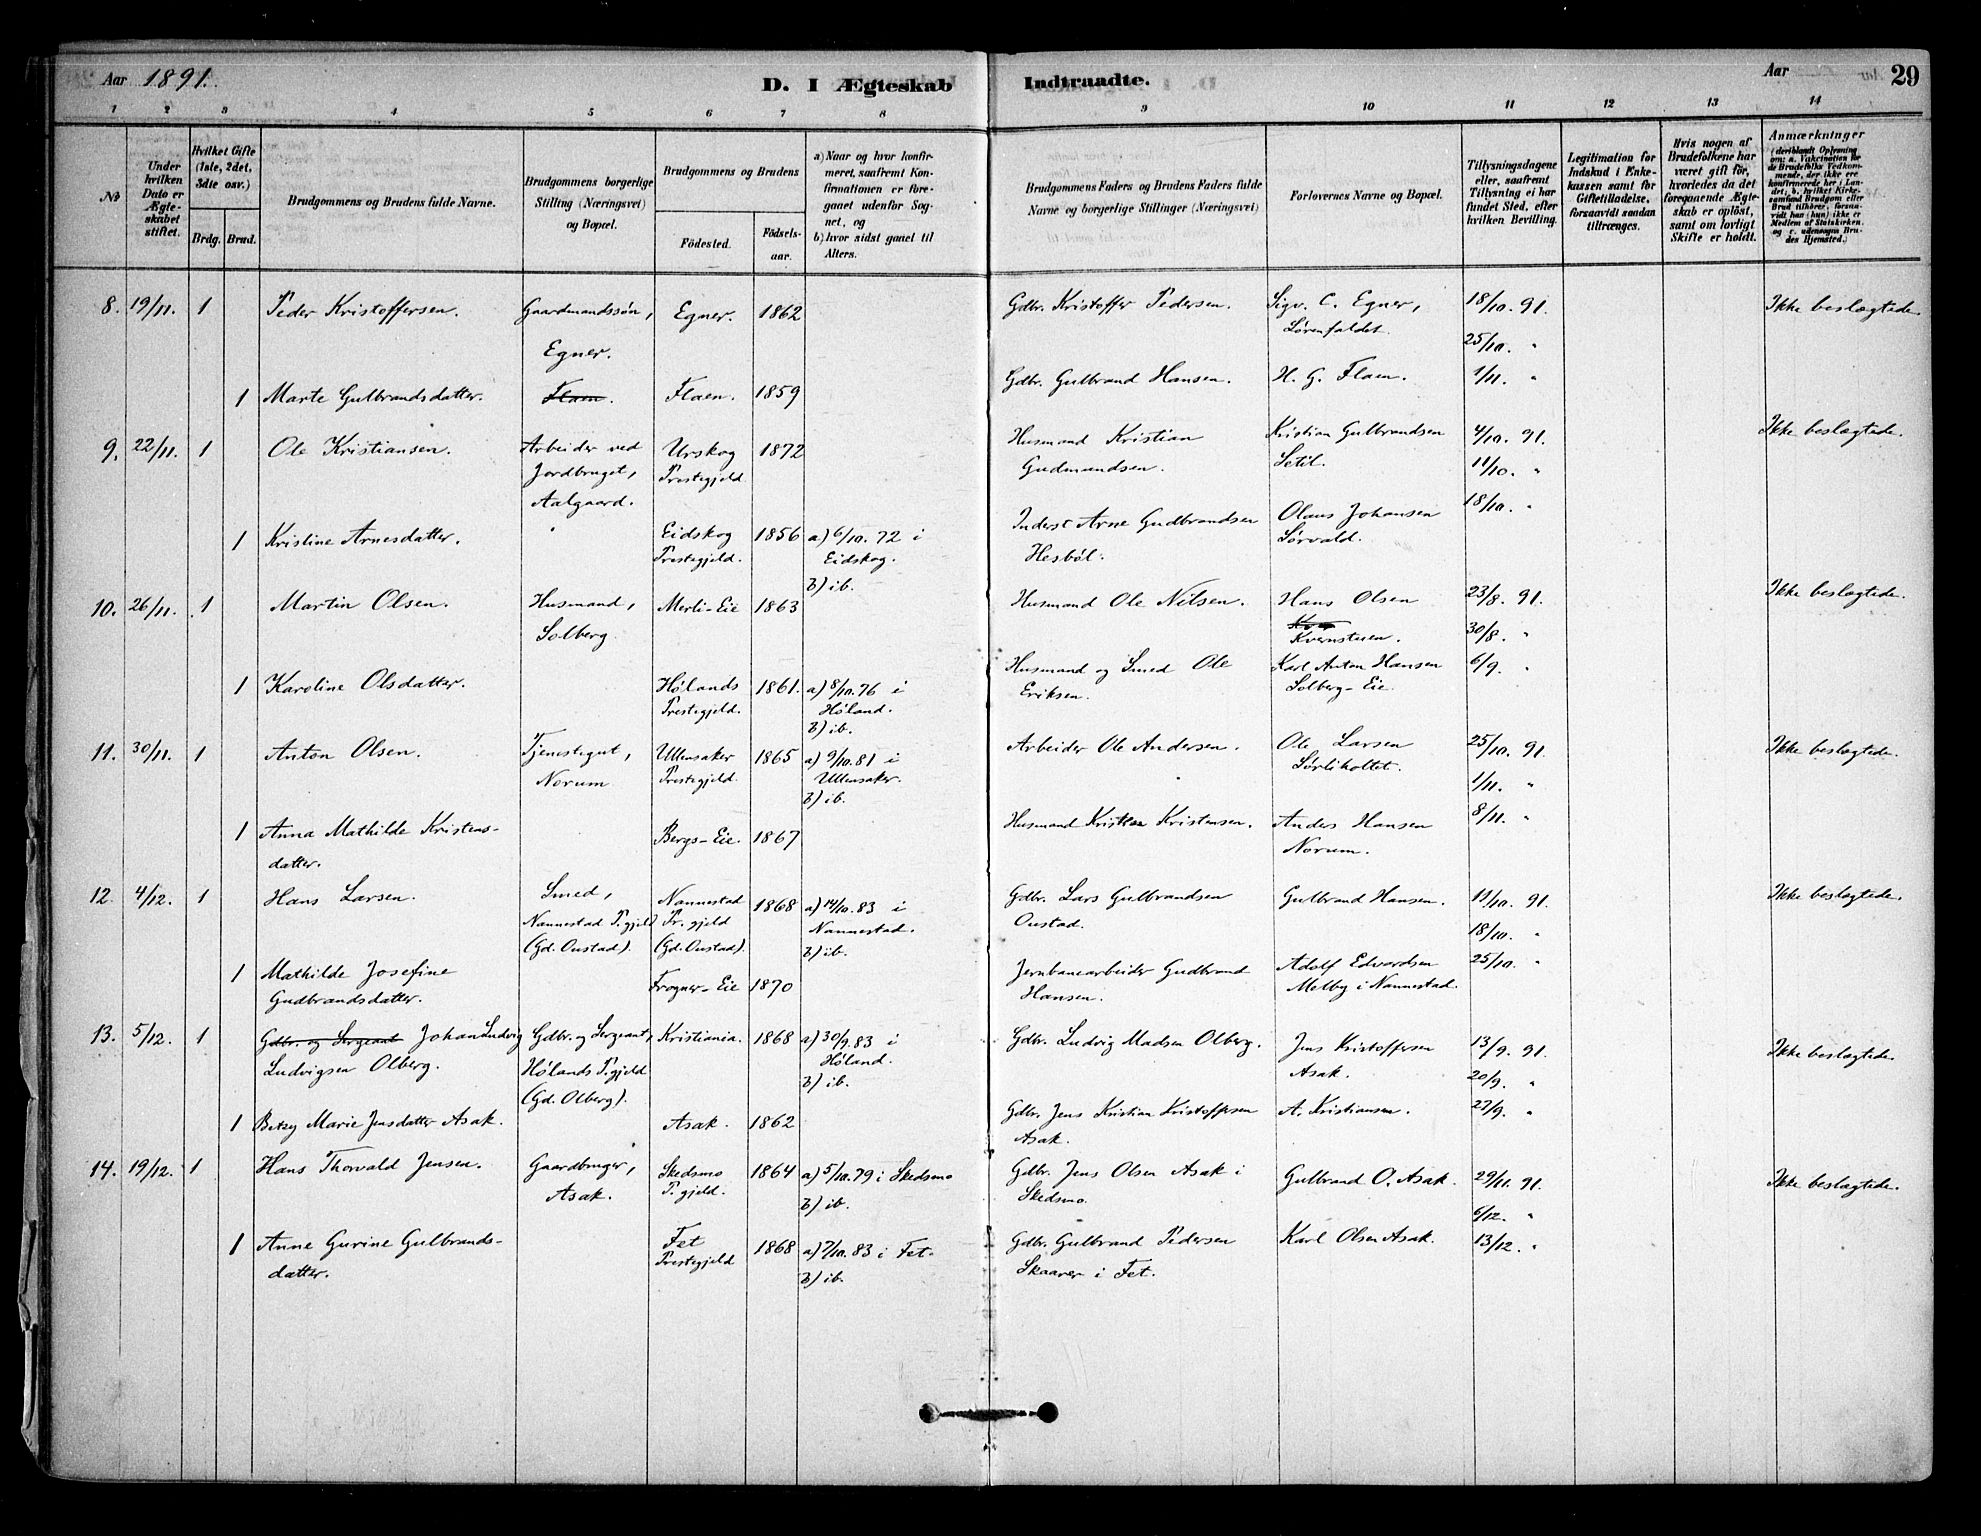 Aar 1891.
D. I Ægteskab Indtraadte.
Aar 29
1 2 3 4 5 6 7 8 9 10 11 12 13 14
No
Under hvilken Dato er Ægteskabet stiftet.
Hvilket Gifte (1ste, 2det, 3die osv.)
Brdg. Brud.
Brudgommens og Brudens fulde Navne.
Brudgommens borgerlige Stilling (Næringsvei) og Bopæl.
Brudgommens og Brudens
Födested. Födselsaar.
a) Naar og hvor konfirmeret, saafremt Konfirmationen er foregaaet udenfor Sognet, og
b) hvor sidst gaaet til Alters.
Brudgommens Faders og Brudens Faders fulde Navne og borgerlige Stillinger (Næringsvei)
Forlovernes Navne og Bopæl.
Tillysningsdagene eller, saafremt Tillysning ei har fundet Sted, efter hvilken Bevilling.
Legitimation for Indskud i Enkekassen samt for Giftetilladelse, forsaavidt saadan tiltrænges.
Hvis nogen af Brudefolkene har været gift før, hvorledes da det foregaaende Ægteskab er oplöst, samt om lovligt Skifte er holdt.
Anmærkninger (deriblandt Oplysning om: a. Vakcination for de Brudefolks Vedkommende, der ikke ere konfirmerede her i Landet, b. hvilket Kirkesamfund Brudgom eller Brud tilhörer, forsaavidt han (hun) ikke er Medlem af Statskirken, og c. udensogns Brudes Hjemsted.)
8. 19/11. 1 Peder Kristoffersen. Gaardmandssøn, Egner. Egner. 1862 Gdbr. Kristoffer Pedersen. Sigv. C. Egner, Lørenfaldet. 18/10. 91. 25/10. " Ikke beslægtede.
1 Marte Gulbrandsdatter. Flaen. Flaen. 1859 Gdbr. Gulbrand Hansen. H. G. Flaen. 1/11. "
9. 22/11. 1 Ole Kristiansen. Arbeider ved Jordbruget, Aalgaard. Urskog Prestegjeld 1872 Husmand Kristian Gudmandsen. Kristian Gulbrandsen Setil. 4/10. 91. 11/10. " Ikke beslægtede.
1 Kristine Arnesdatter. Eidskog Prestegjeld. 1856 a) 6/10. 72 i Eidskog. b) ib. Inderst Arne Gudbrandsen Hesbøl. Olaus Johansen Sørvald. 18/10. "
10. 26/11. 1 Martin Olsen. Husmand, Solberg. Merli-Eie 1863 Husmand Ole Nilsen. Hans Olsen Kvernstuen. 23/8. 91. 30/8. " Ikke beslægtede.
1 Karoline Olsdatter. Hølands Prestegjeld. 1861. a) 8/10. 76 i Høland. b) ib. Husmand og Smed Ole Eriksen. Karl Anton Hansen Solberg-Eie. 6/9. "
11. 30/11. 1 Anton Olsen. Tjenestegut, Norum Ullensaker Prestegjeld. 1865 a) 9/10. 81 i Ullensaker. b) ib. Arbeider Ole Andersen. Ole Larsen Sørliholtet. 25/10. 91. 1/11. " Ikke beslægtede.
1 Anna Mathilde Kristensdatter. Bergs-Eie. 1867 Husmand Kristen Kristensen. Anders Hansen Norum. 8/11. "
12. 4/12. 1 Hans Larsen. Smed, Nannestad P.gjeld (Gd. Oustad). Nannestad Pr.gjeld (Gd. Oustad). 1868 a) 14/10. 83 i Nannestad. b) ib. Gdbr. Lars Gulbrandsen Oustad. Gulbrand Hansen. 11/10. 91. 18/10. " Ikke beslægtede.
1 Mathilde Josefine Gudbrandsdatter. Frogner-Eie 1870 Jernbanearbeider Gudbrand Hansen. Adolf Edvardsen Melby i Nannestad. 25/10. "
13. 5/12. 1 Gdbr. og Sergeant Johan Ludvig Ludvigsen Olberg. Gdbr. og Sergeant, Hølands P.gjeld (Gd. Olberg). Kristiania. 1868 a) 30/9. 83 i Høland. b) ib. Gdbr. Ludvig Madsen Olberg. Jens Kristoffersen Asak. 13/9. 91. 20/9. " Ikke beslægtede.
1 Betzy Marie Jensdatter Asak. Asak. 1862 Gdbr. Jens Kristian Kristoffersen Asak. A. Kristiansen. 27/9. "
14. 19/12. 1 Hans Thorvald Jensen. Gaardbruger, Asak. Skedsmo P.gjeld. 1864 a) 5/10. 79 i Skedsmo b) ib. Gdbr. Jens Olsen Asak i Skedsmo. Gulbrand O. Asak. 29/11. 91. 6/12. " Ikke beslægtede.
1 Anne Gurine Gulbrandsdatter. Fet Prestegjeld 1868 a) 7/10. 83 i Fet. b) ib. Gdbr. Gulbrand Pedersen Skaarer i Fet. Karl Olsen Asak. 13/12. "